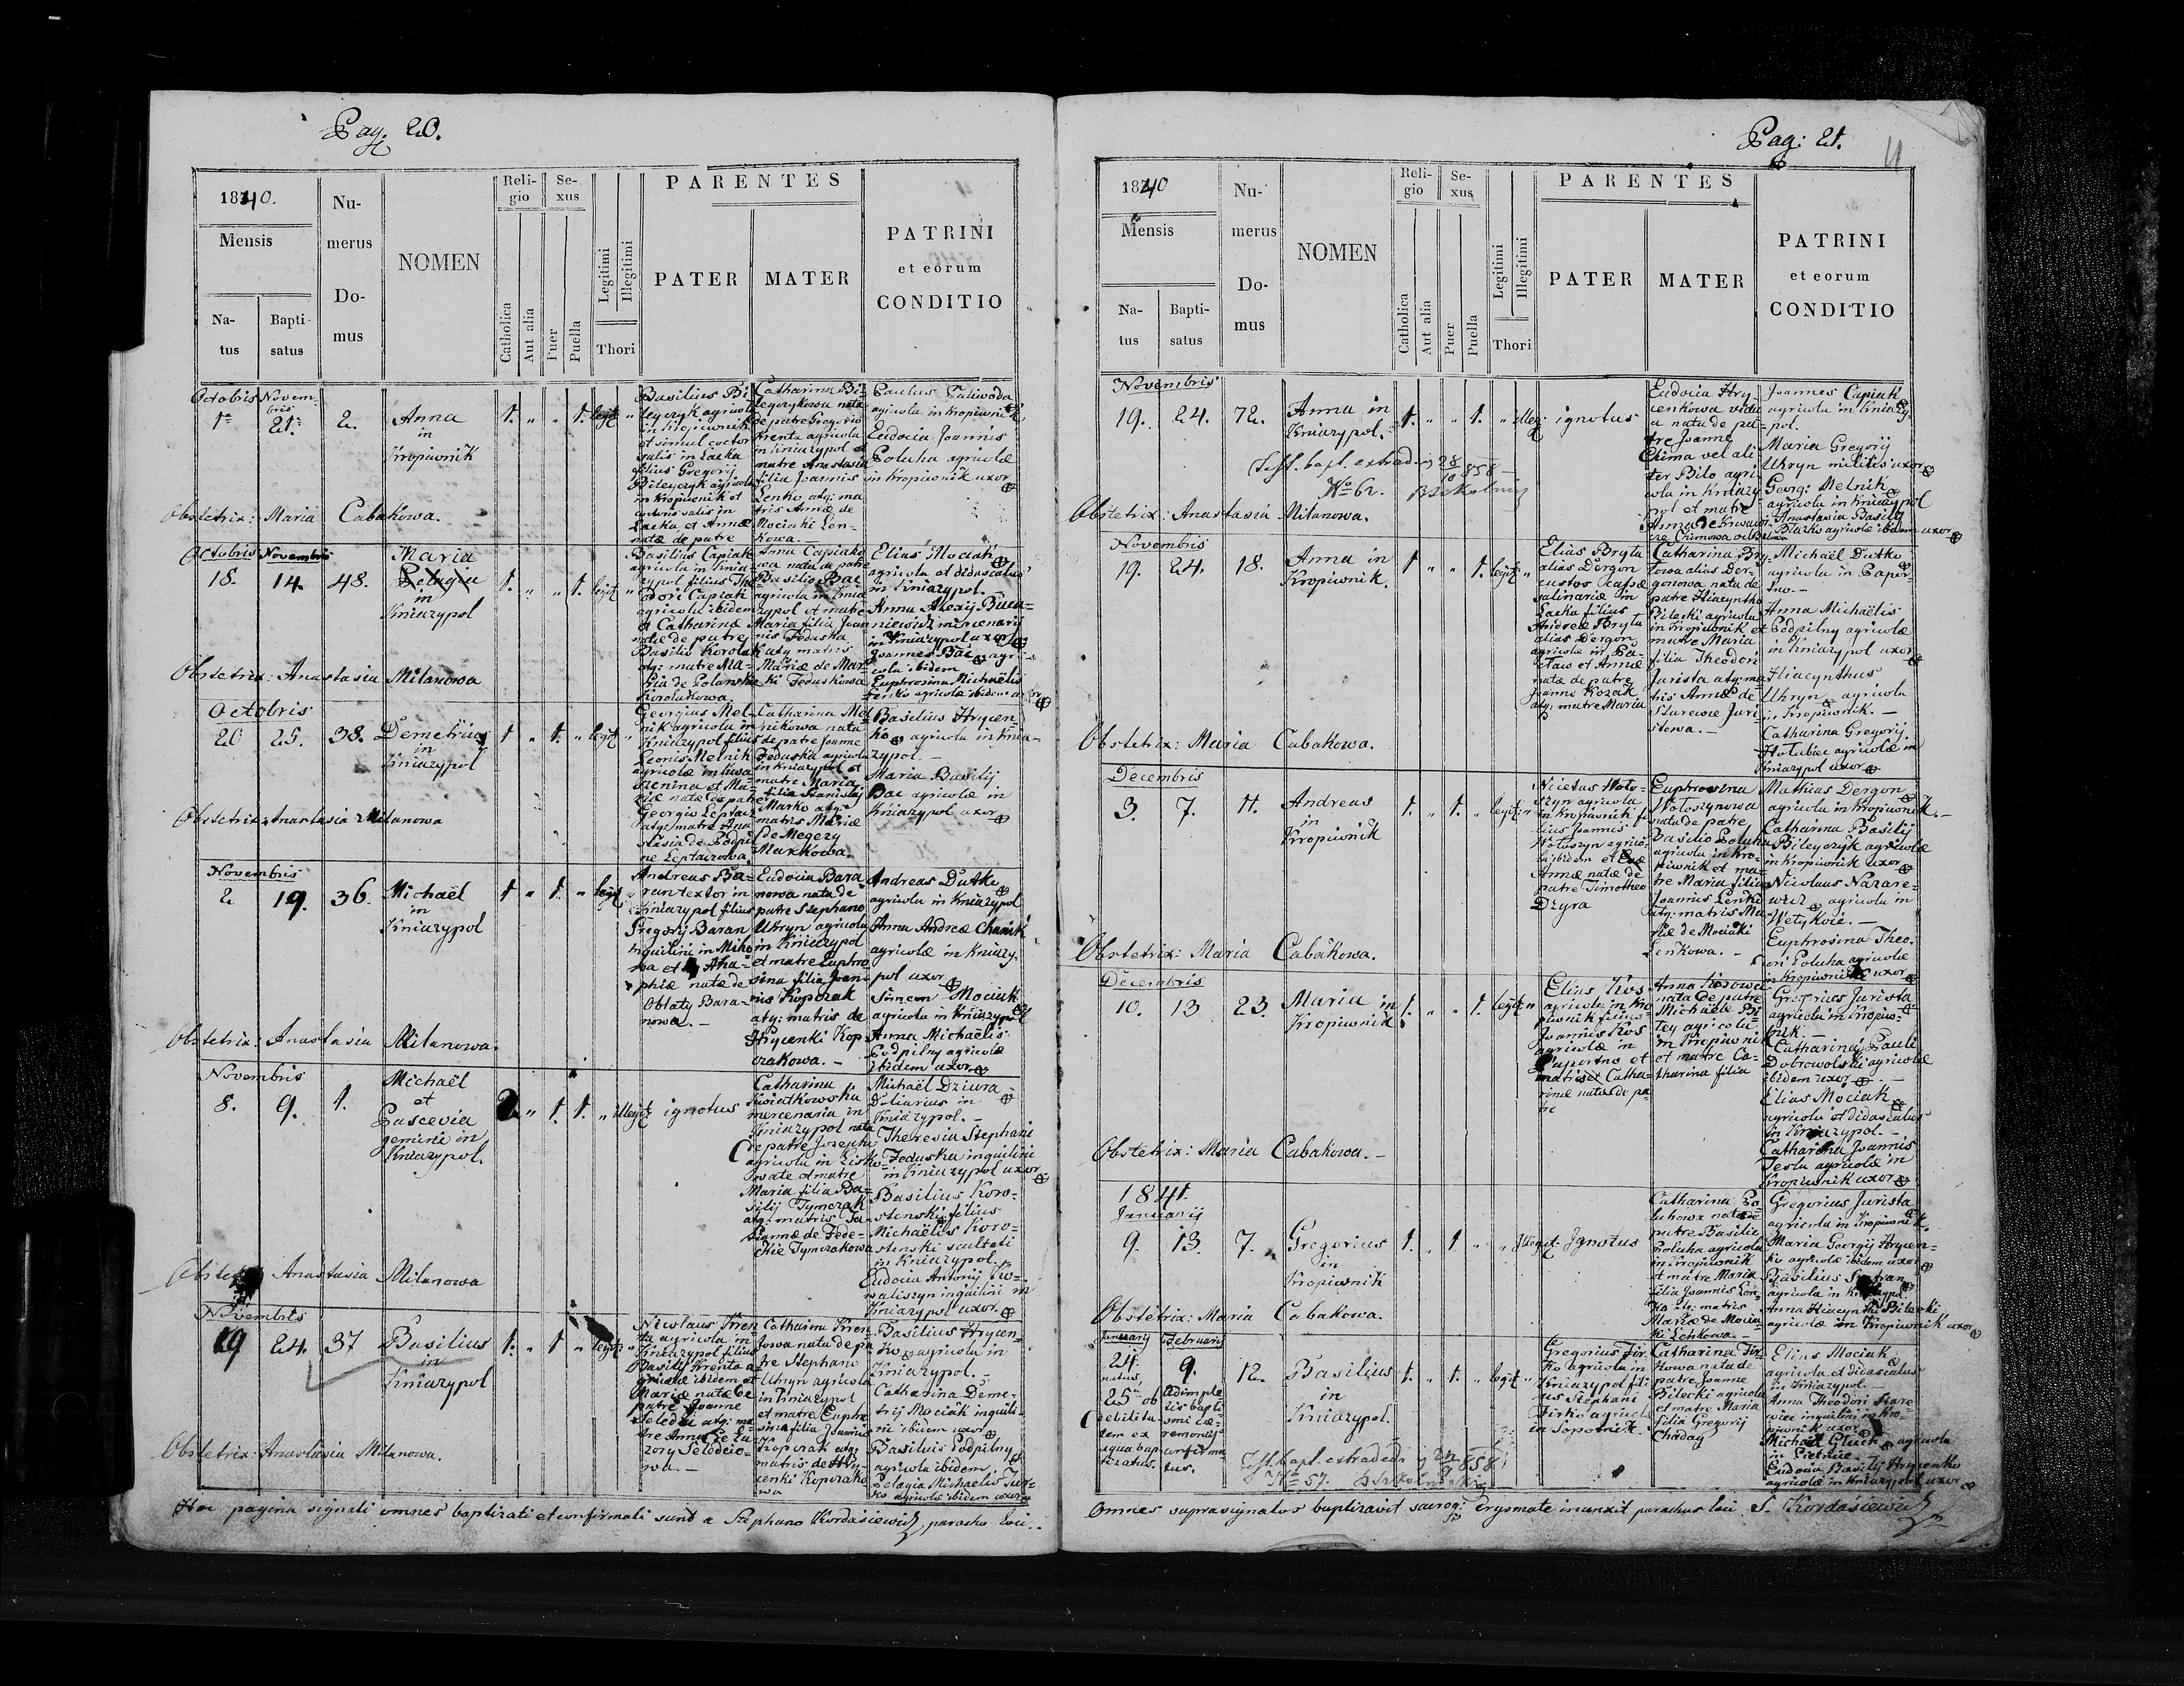 Pag. 20.
1840.
Mensis
Na-
tus
Bapti-
satus
Nu-
merus
Do-
mus
NOMEN
Reli-
gio
Catholica
Aut alia
Se-
xus
Puer
Puella
Legitimi
Illegitimi
Thori
PARENTES
PATER
MATER
PATRINI
et eorum
CONDITIO
Octobris Novem-
bris
21.
2.
Anna
in
Kropiwnik
1. " " 1. legit "
Basilius Bi
leyczyk agricola
in Kropiwnik
et simul coctor
salis in Lacka
filius Gregorij
Bileyczyk agricola
in Kropiwnik et
salis in
Lacka et Annæ
natæ de patre
Catharina Bi-
leyczykowa nata
de patre Gregorio
Krenta agricola
in Kniazypol et
matre Anastasia
filia Joannis
Lenko atq: ma
tris Annæ de
Mociaki Len-
kowa.
Paulus Faliwoda
agricola in Kropiwnik
Eudocia Joannis
Poluha agricolæ
in Kropiwnik uxor
Obstetrix: Maria Cabakowa.
Octobris Novembris
18. 14. 48.
Maria
in
Kniazypol
1. " " 1. legit "
Basilius Capiak
agricola in Knia-
zypol filius The
odori Capiak
agricola ibidem
et Catharinæ
natæ de patre
Basilio Korolak
atq: matre Ma-
ria de Polanska
Korolakowa.
Anna Capiako
wa nata de patre
Basilio Bac
agricola in Knia
zypol et matre
Maria filia Joan
nis Feduska
atq matris
Mariæ de Mar
ki Feduskowa
Elias Mociak
agricola et didascalus
in Kniazypol.
Anna Alexij Buca-
niewicz mercenarij
in Kniazypol uxor
Joannes Bac agri-
cola ibidem
Euphrosina Michaëlis
Fenko agricolæ ibidem uxor
Obstetrix: Anastasia Milanowa
Octobris
20 25. 38.
Demetrius
in
Kniazypol
1 " 1. " legit "
Georgius Mel-
nik agricola in
Kniazypol filius
Leonis Melnik
agricolæ in Kwa
szenina et Ma-
riæ natæ de patre
Georgio Leptacz
atq: matre Ana
stasia de Podpil
ne Leptaczowa.
Catharina Mel
nikowa nata
de patre Joanne
Feduska agricola
in Kniazypol et
matre Maria
filia Stanislaj
Marko atq:
matris Mariæ
de Megezy
Markowa.
Basilius Hrycen
ko agricola in Knia-
zypol.-
Maria Basilij
Bac agricolæ in
Kniazypol uxor
Obstetrix: Anastasia Milanowa
Novembris
2. 19. 36.
Michaël
in
Kniazypol
1 " 1. " legit
Andreas Ba-
ran textor in
Kniazypol filius
Gregorij Baran
inquilini in Micho
wa et Aga-
phiæ natæ de
Oblaty Bara-
nowa.-
Eudocia Bara
nowa nata de
patre Stephano
Uhryn agricola
in Kniazypol
et matre Euphro
sina filia Joan-
nis Kopczak
atq: matris de
Hrycenki Kop-
czakowa.-
Andreas Dutko
agricola in Kniazypol
Anna Andreæ Chanik
agricolæ in Kniazy-
pol uxor
Simeon Mociak
agricola in Kniazypol
Anna Michaëlis
Podpilny agricolæ
ibidem uxor
Obstetrix: Anastasia Milanowa.
Novembris
8. 9. 1.
Michaël
et
Pascevia
gemini in
Kniazypol.
2. " 1. 1. " illegit
ignotus
Catharina
Kwiatkowska
mercenaria in
Kniazypol nata
de patre Josepho
agricola in Lisko
wate et matre
Maria filia Ba-
silij Tymczak
atq: matris Ta-
cianæ de Fede-
ckie Tymczakowa
Michaël Dziura
Doliarius in
Kniazypol.-
Theresia Stephani
Feduska inquilini
in Kniazypol uxor
Basilius Koro-
stenski filius
Michaëlis Koro-
stenski sculteti
in Kniazypol.
Eudocia Antonij Ko-
waliszyn inquilini in
Kniazypol uxor.
Obstetrix Anastasia Milanowa
Novembris
19 24. 37
Basilius
in
Kniazypol
1. " 1 " legit "
Nicolaus Kren
ta agricola in
Kniazypol filius
Basilij Krenta a-
gricolæ ibidem et
Mariæ natæ de
patre Joanne
Seledci atq: ma
tre Anna de La
zory Seledcio-
wa.-
Catharina Kren
towa nata de pa
tre Stephano
Uhryn agricola
in Kniazypol
et matre Euphro
sina filia Joannis
Kopczak atq:
matris de Hry-
cenki Kopczako
wa
Basilius Hrycen-
ko agricola in
Kniazypol.-
Catharina Deme-
trij Mociak inquili-
ni ibidem uxor
Basilius Podpilny
agricola ibidem
Pelagia Michaelis Jur-
ko agricolæ ibidem uxor
Obstetrix: Anastasia Milanowa.
Hac pagina signati omnes baptizati et confirmati sunt a Stephano Kordasiewicz parocho loci.
Pag: 21.
11
1840
Mensis
Na-
tus
Bapti-
satus
Nu-
merus
Do-
mus
NOMEN
Reli-
gio
Catholica
Aut alia
Se-
xus
Puer
Puella
Legitimi
Illegitimi
Thori
PARENTES
PATER
MATER
PATRINI
et eorum
CONDITIO
Novembris
19. 24. 72.
Anna in
Kniazypol.
1. " " 1. " illegit
ignotus
Eudocia Hry-
cenkowa vidu
a nata de pa-
tre Joanne
Chima vel ali
ter Bilo agri
cola in Kniazy
pol et matre
Anna de
Joannes Capiak
agricola in Kniazy-
pol.
Maria Gregorij
Uhryn militis uxor
Georg: Melnik
agricola in Kniazypol
Anastasia Basilij
agricolæ ibidem uxor
Test. bapt. extrad. 28/10 858
No 62.
Obstetrix: Anastasia Milanowa.
Novembris
19. 24. 18.
Anna in
Kropiwnik.
1 " " 1. legit "
Elias Bryla
alias Dergon
custos Cassæ
salinariæ in
Lacka filius
Andreæ Bryla
alias Dergon
agricolæ in
et Annæ
natæ de patre
Joanne Kozak
atq: matre Maria
Catharina Bry-
lowa alias Der-
gonowa nata de
patre Hiacyntho
Bilecki agricola
in Kropiwnik et
matre Maria
filia Theodori
Jurista atq: ma
tris Annæ de
Starewie Juri-
stowa.-
Michaël Dutko
agricola in Papor-
tno.-
Anna Michaëlis
Podpilny agricolæ
in Kniazypol uxor
Hiacynthus
Uhryn agricola
in Kropiwnik.-
Catharina Gregorij
Holubiec agricolæ in
Kniazypol uxor
Obstetrix: Maria Cabakowa.
Decembris
3. 7. 11.
Andreas
in
Kropiwnik
1. " 1. " legit "
Nicetas Wolo-
szyn agricola
in Kropiwnik fi
lius Joannis
Woloszyn agrico-
læ ibidem et
Annæ natæ de
patre Timotheo
Dzyra
Euphrosina
Woloszynowa
nata de patre
Basilio Poluha
agricola in Kro-
piwnik et ma-
tre Maria filia
Joannis Lenki
atq: matris Ma-
riæ de Mociaki
Lenkowa.-
Mathias Dergon
agricola in Kropiwnik.-
Catharina Basilij
Bileyczyk agricolæ
in Kropiwnik uxor
Nicolaus Nazare-
wicz agricola in
Wetykoie.-
Euphrosina Theo-
ori Poluha agricolæ
in Kropiwnik uxor
Obstetrix: Maria Cabakowa.
Decembris
10. 13 23.
Maria in
Kropiwnik
1. " " 1. legit "
Elias Kos
agricola in Kro
piwnik filius
Joannis Kos
agricolæ in
Paportno et
matris Catha-
rinæ natæ de pa-
tre
Anna Kosowa
nata de patre
Michaële Bi-
ley agricola
in Kropiwnik
et matre Ca-
tharina filia
Gregorius Jurista
agricola in Kropiw-
nik.-
Catharina Pauli
Dobrowolski agricolæ
ibidem uxor
Elias Mociak
agricola et didascalus
in Kniazypol.-
Catharina Joannis
Tesla agricolæ in
Kropiwnik uxor
Obstetrix: Maria Cabakowa.-
1841.
Januarij
9. 13. 7.
Gregorius
in
Kropiwnik
1. " 1 " " Illegit.
Ignotus
Catharina Po-
luhowa nata de
patre Basilio
Poluha agricola
in Kropiwnik
et matre Maria
filia Joannis Len-
ko atq: matris
Mariæ de Mocia-
ki Lenkowa.-
Gregorius Jurista
agricola in Kropiwnik.
Maria Georgij Hrycen-
ko agricolæ ibidem uxor
Basilius
agricola in Kniazypol.
Anna Hiacynthi Bilecki
agricolæ in Kropiwnik uxor
Obstetrix: Maria Cabakowa.
Januarij Februarij
24. 9. 12.
natus,
25a ob
debilita-
tem ex
aqua bap-
tizatus.
Adimple
tis bapti-
smi cæ-
remoniis
confirma-
tus.
Basilius
in
Kniazypol.
1. " 1. " legit "
Gregorius Fir-
ko agricola in
Kniazypol fili-
us Stephani
Firko agricolæ
in Sopotnik.
Catharina Fir-
kowa nata de
patre Joanne
Bilecki agricola
et matre Maria
filia Gregorij
Chaday
Elias Mociak
agricola et didascalus
in Kniazypol.
Anna Theodori
inquilini in Kro-
piwnik uxor
Michaël agricola
in
Eudocia Basilij Hrycenko
agricolæ in Kniazypol uxor
Test. bapt. extradedi 858
No 57.
Omnes suprasignatos baptizavit sacroq: Crysmate inunxit parochus loci S. Kordasiewicz